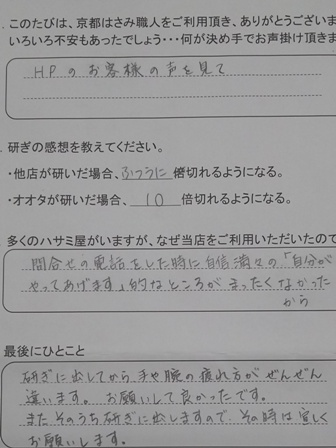 . このたびは、京都はさみ職人をご利用頂き、ありがとうございま
いろいろ不安もあったでしょう･･･何が決め手でお声掛け頂きま
HPのお客様の声を見て
. 研ぎの感想を教えてください。
・他店が研いだ場合、ふつうに 倍切れるようになる。
・オオタが研いだ場合、10 倍切れるようになる。
. 多くのハサミ屋がいますが、なぜ当店をご利用いただいたので
問合せの電話をした時に自信満々の「自分が
やってあげます」的なところがまったくなかった
から
最後にひとこと
研ぎに出してから手や腕の疲れ方がぜんぜん
違います。お願いして良かったです。
またそのうち研ぎに出しますので その時は宜しく
お願いします。